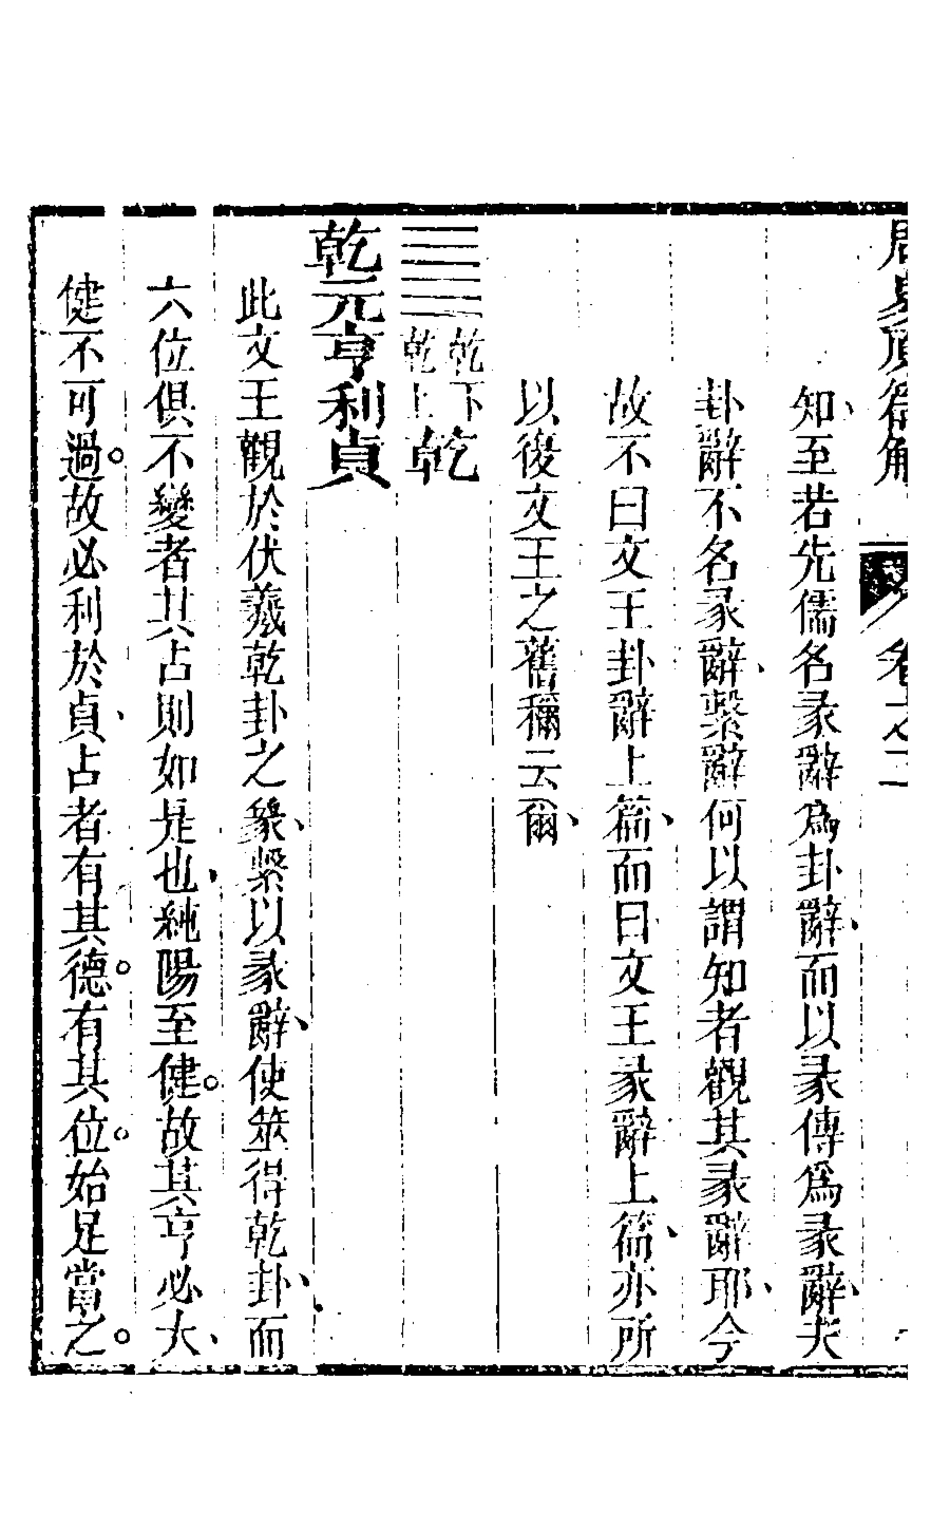 卷之二
知至若先儒名彖辭爲卦辭而以彖傳爲彖辭夫
卦辭不名彖辭繫辭何以謂知者觀其彖辭耶今
故不曰文王卦辭上篇而曰文王彖辭上篇亦所
以復文王之舊稱云爾
乾下乾上乾
乾元亨利貞
此文王觀於伏羲乾卦之𧰼繫以彖辭使筮得乾卦而
六位俱不變者其占則如是也純陽至健故其亨必大
健不可過故必利於貞占者有其德有其位始足當之